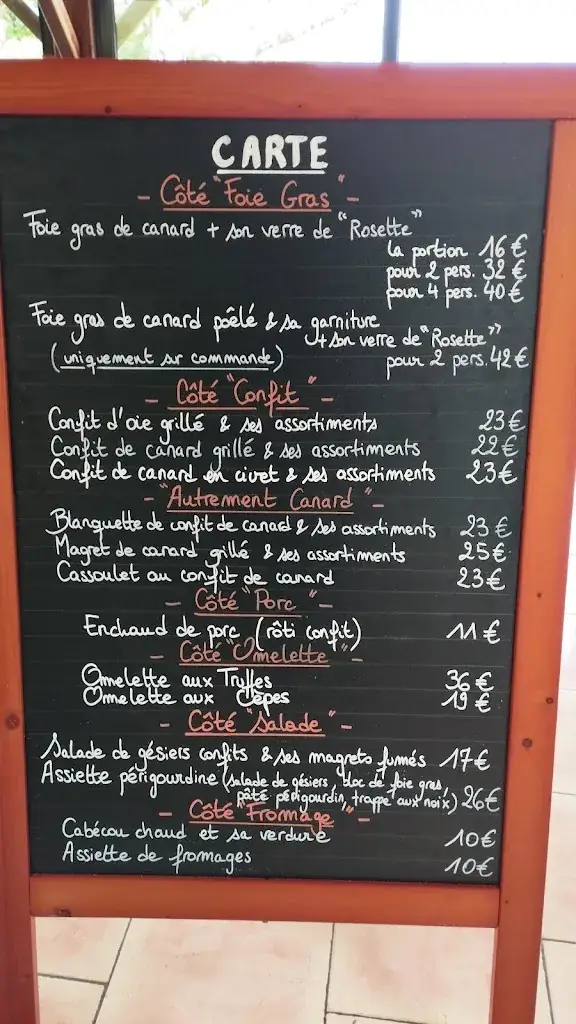 CARTE
- Côté "Foie Gras" -
Foie gras de canard + son verre de "Rosette"
la portion 16€
pour 2 pers. 32€
pour 4 pers. 40€
Foie gras de canard poêlé & sa garniture
+ son verre de "Rosette"
(uniquement sur commande) pour 2 pers. 42€
- Côté "Confit" -
Confit d'oie grillé & ses assortiments 23€
Confit de canard grillé & ses assortiments 22€
Confit de canard en civet & ses assortiments 23€
- "Autrement Canard" -
Blanquette de confit de canard & ses assortiments 23€
Magret de canard grillé & ses assortiments 25€
Cassoulet au confit de canard 23€
- Côté "Porc" -
Enchaud de porc (rôti confit) 11€
- Côté "Omelette" -
Omelette aux Truffes 36€
Omelette aux Cèpes 19€
- Côté "Salade" -
Salade de gésiers confits & ses magrets fumés 17€
Assiette périgourdine (salade de gésiers, bloc de foie gras,
pâté périgourdin, trappe aux noix) 26€
- Côté "Fromage" -
Cabécou chaud et sa verdure 10€
Assiette de fromages 10€